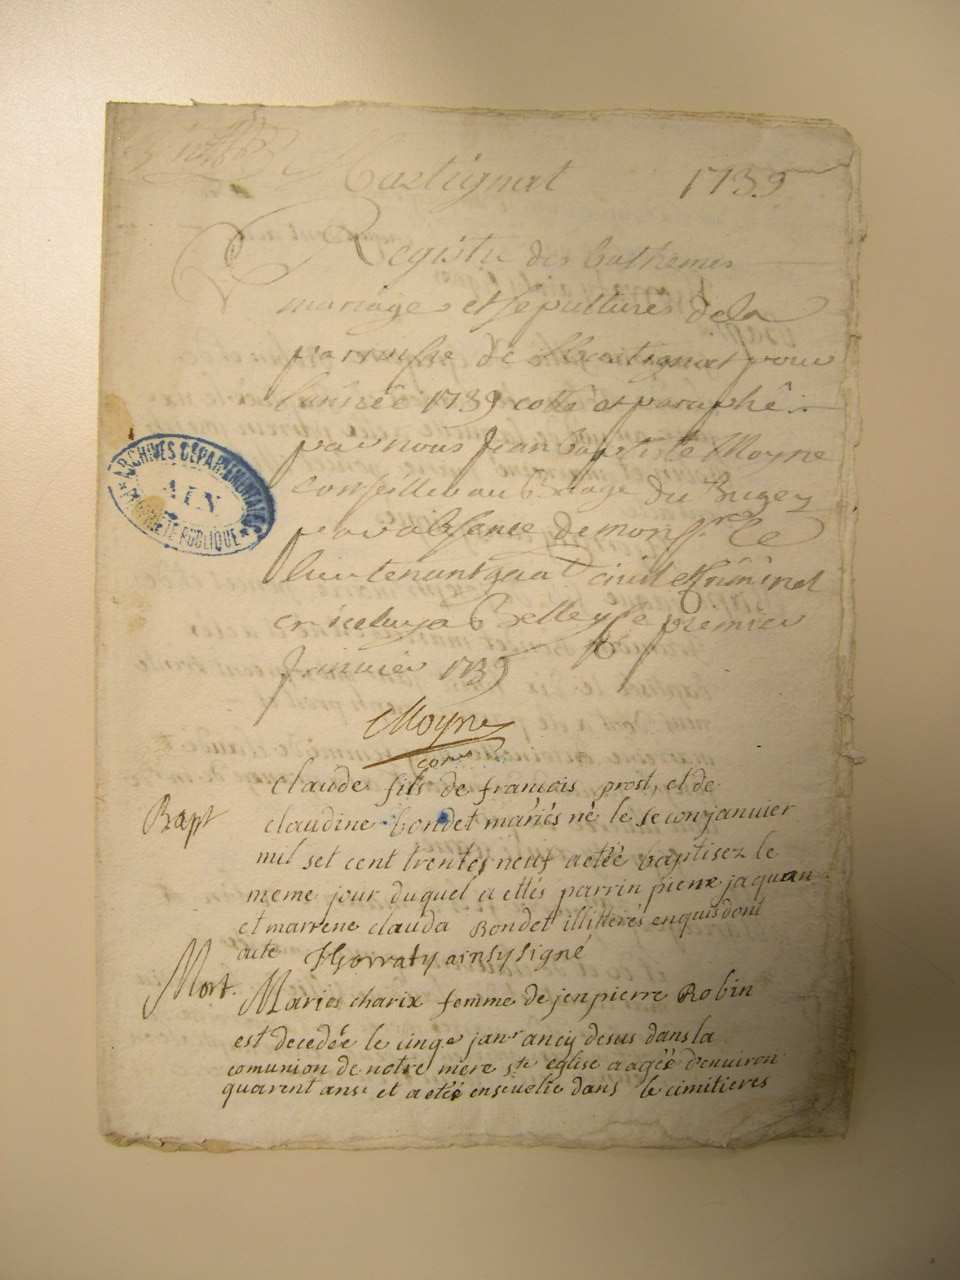 Mastignat 1739
Registre des bathemes
mariages et sepultures de la
parroisse de Mastignat pour
l'année 1739 cotté et paraphé
par nous Jean Baptiste Moyne
Conseiller au Bailiage du Bugey
pour absence de monsr. le
lieutenant gnal civil et criminel
en iceluy a Belley le premier
Janvier 1739
Moyne
ARCHIVES DÉPARTEMENTALES
AIN
PROPRIÉTÉ PUBLIQUE
Bapt
claude fils de francois prost, et de
claudine bondet mariés né le seconjanvier
mil set cent trentes neuf a etéé baptisez le
meme jour duquel a ettés parrin pierre jaquan
et marrene clauda Bondet illitterés enquis dont
acte Hgorraty ainsy signé
Mort.
Maries charix femme de jenpierre Robin
est decedée le cinqe janr ancy desus dans la
comunion de notre mere ste eglise aagéé denuiron
quarent ans et a etéé enseuelie dans le cimitieres